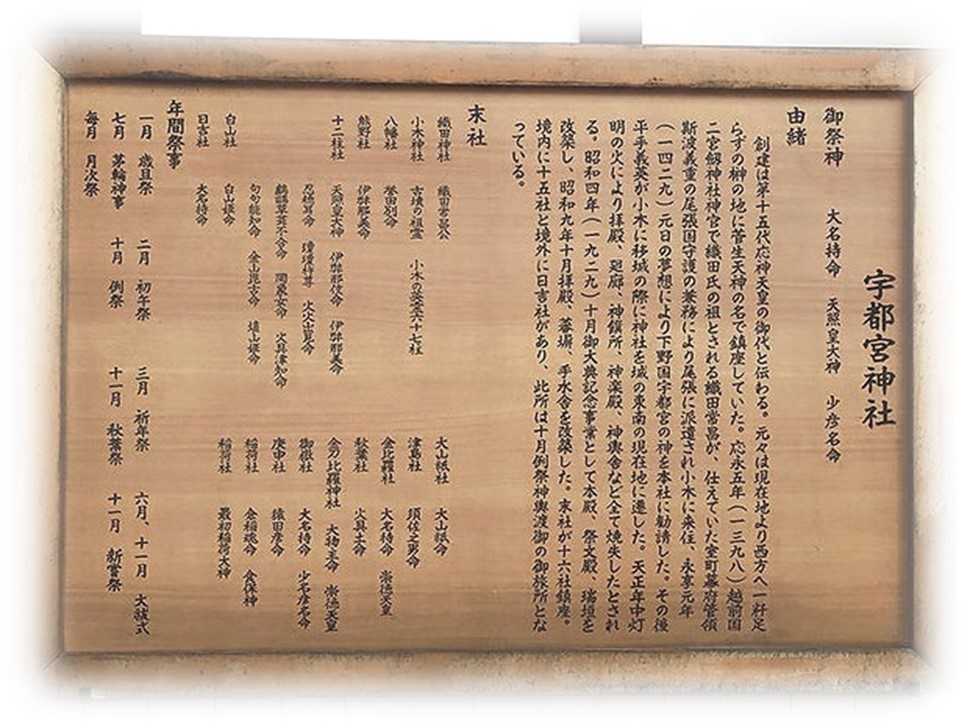 宇都宮神社
御祭神 大名持命 天照皇大神 少彦名命
由緒
創建は第十五代応神天皇の御代と伝わる。元々は現在地より西方へ一粁足
らずの榊の地に菅生天神の名で鎮座していた。応永五年(一三九八)越前国
二宮劔神社神官で織田氏の祖とされる織田常昌が、仕えていた室町幕府管領
斯波義重の尾張国守護の兼務により尾張に派遣され小木に来住、永享元年
(一四二九)元日の夢想により下野国宇都宮の神を本社に勧請した。その後
平手義英が小木に移城の際に神社を城の東南の現在地に遷した。天正年中灯
明の火により拝殿、廻廊、神饌所、神楽殿、神輿舎など全て焼失したとされ
る。昭和四年(一九二九)十月御大典記念事業として本殿、祭文殿、瑞垣を
改築し、昭和九年十月拝殿、蕃塀、手水舎を改築した。末社が十六社鎮座。
境内に十五社と境外に日吉社があり、此所は十月例祭神輿渡御の御旅所とな
っている。
末社
織田神社 織田常昌公
小木神社 古墳の墳霊 小木の菜霊六十七社
八幡社 誉田別命
熊野社 伊弉那美命
十二柱社 天照皇大神 伊弉那岐命 伊弉那美命
忍穂耳命 瓊瓊杵尊 火火出見命
鵜鵜草葺不合命 罔象女命 火具津知命
句句能知命 金山毘女命 埴山姫命
白山社 白山姫命
日吉社 大名持命
大山祇社 大山祇命
津島社 須佐之男命
金比羅社 大名持命 崇徳天皇
秋葉社 火具土命
金刀比羅神社 大物主命 崇徳天皇
御嶽社 大名持命 少名彦名命
庚申社 猿田彦命
稲荷社 倉稲魂命 食保神
稲荷社 最初稲荷大神
年間祭事
一月 歳旦祭 二月 初午祭 三月 祈年祭 六月、十一月 大祓式
七月 茅輪神事 十月 例祭 十一月 秋葉祭 十一月 新嘗祭
毎月 月次祭